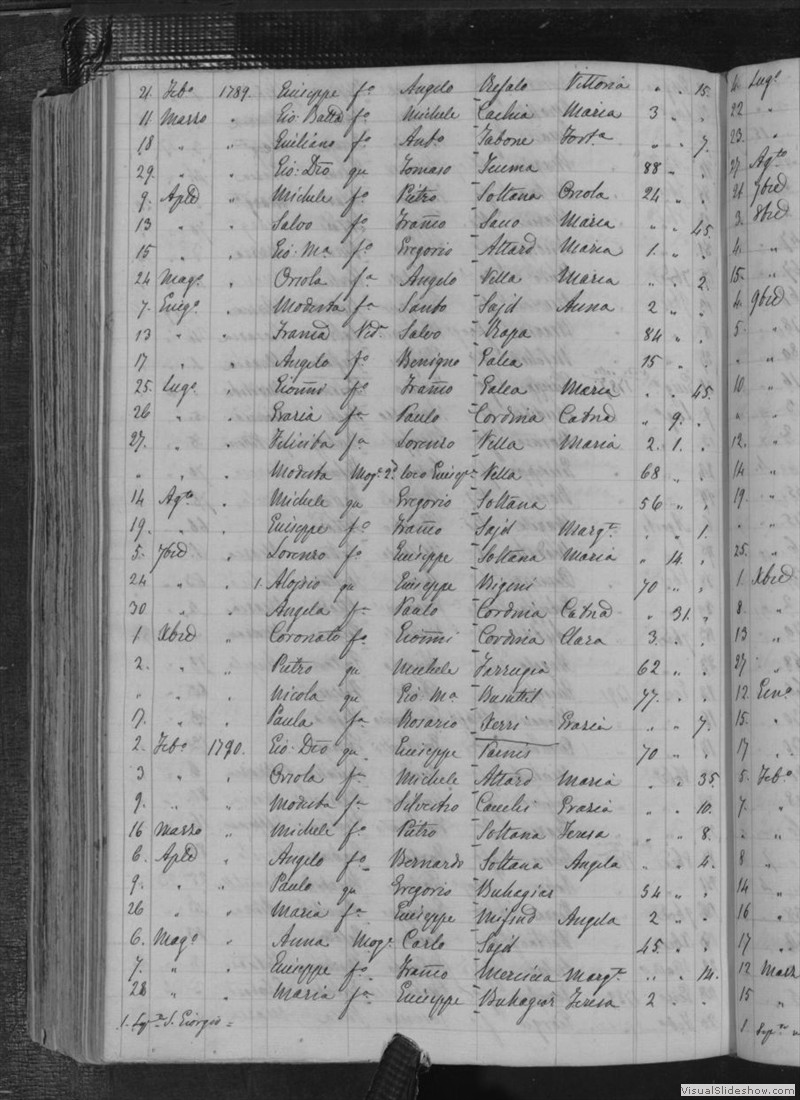 2. Febo 1789. Giuseppe fo Angelo Refalo Vittoria " . 15.
11 Marzo " Gio: Batta fo Michele Cachia Maria 3 " .
18 " " Giuliano fo Anto Zabone " . 7.
29. " " Gio: Dro qu Tomaso 88 " .
9. Aple " Michele fo Pietro Soltana Oriola 24 " .
13 " . Salvo fo Franco Maria " . 45.
15 " . Gio: Ma fo Gregorio Attard Maria 1. " .
24 Mago . Oriola fa Angelo Vella Maria " . 2.
7. Giugo . Modesta fa Santo Sajd Anna 2 " .
13 " . Franca Vida Salvo Rapa 84 " .
17 " . Angelo fo Benigno Galea 15 " .
25. Lugo . Gionni fo Franco Galea Maria . . 45.
26 " . Grazia fa Paulo Cordina Catna " 9. .
27. " . Felicita fa Lorenzo Vella Maria 2. 1. .
" " . Modesta Moge 2o loco Giuspe Vella 68 " .
14 Agto . Michele qu Gregorio Soltana 56 " .
19. " . Giuseppe fo Franco Sajd Margta . . 1.
5. 7bre . Lorenzo fo Giuseppe Soltana Maria " 14. .
24 " . 1. Aloisio qu Giuseppe Bigeni 70 " .
30 " . Angela fa Paulo Cordina Catna " 31. .
1. Xbre " Coronato fo Gionni Cordina Clara 3. " .
2. " . Pietro qu Michele Farrugia 62 " .
" " . Nicola qu Gio: Ma Busuttil 77. " .
17. " . Paula fa Rosario Xerri Grazia " " 7.
2. Febo 1790. Gio: Dro qu Giuseppe 70 " .
3 " " Oriola fa Michele Attard Maria " . 35.
9. " " Modesta fa Silvestro Camelri Grazia " . 10.
16 Marzo " Michele fo Pietro Soltana Teresa " " 8.
6. Aple " Angelo fo Bernardo Soltana Angela " . 4.
9. " " Paulo qu Gregorio Buhagiar 54 " .
26 " " Maria fa Giuseppe Mifsud Angela 2 " .
6. Mago " Anna Moge Carlo Sajd 45. " .
7. " " Giuseppe fo Franco Mercieca Margta " . 14.
28 " . Maria fa Giuseppe Buhagiar Teresa 2 . .
1. S. Giorgio =
4. Lugo
22 "
23. "
27 Agto
21 7bre
3. 8bre
4. "
15. "
4. 9bre
5. "
" "
10. "
" "
12. "
14 "
19. "
" "
25. "
1. Xbre
8. "
13 "
27 "
12. Geno
15. "
17 "
5. Febo
7. "
" "
8 "
14 "
16 "
17 "
12 Marz
15 "
1.
VisualSlideshow.com